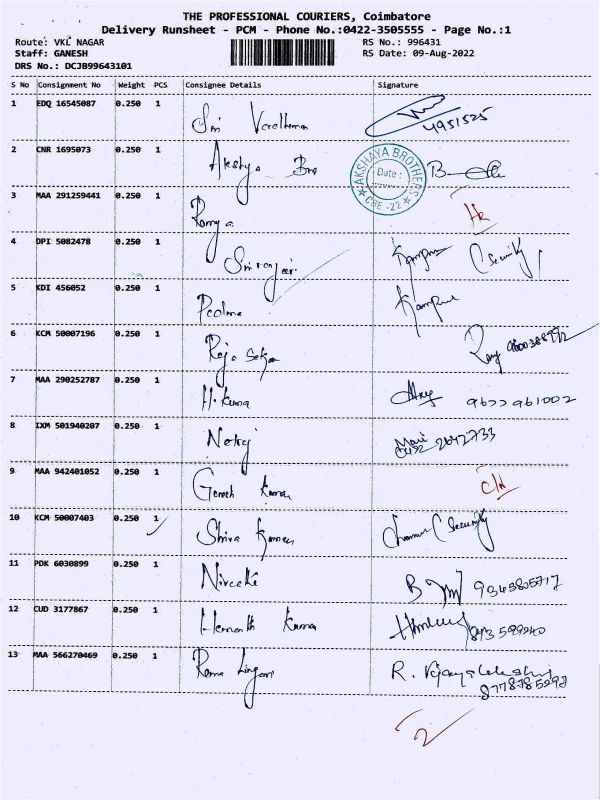 THE PROFESSIONAL COURIERS, Coimbatore
Delivery Runsheet - PCM - Phone No.:0422-3505555 - Page No.:1
Route: VKL NAGAR RS No.: 996431
Staff: GANESH RS Date: 09-Aug-2022
DRS No.: DCJB99643101
S No Consignment No Weight PCS Consignee Details Signature
1 EDQ 16545087 0.250 1 Sri Vardhman 4951525
2 CNR 1695073 0.250 1 Akshya Bro AKSHAYA BROTHERS Date : CBE - 22
3 MAA 291259441 0.250 1 Ramya
4 DPI 5082478 0.250 1 C Security
5 KDI 456052 0.250 1 Padma
6 KCM 50007196 0.250 1 Raja Sekar
7 MAA 290252787 0.250 1 H. Kumar 9677961002
8 IXM 501940207 0.250 1 Netraj Mani 2642733
9 MAA 942401052 0.250 1 Ganesh Kumar
10 KCM 50007403 0.250 1 Shiva Kumar C Security
11 PDK 6030899 0.250 1 9345825717
12 CUD 3177867 0.250 1 Hemanth Kumar
13 MAA 566270469 0.250 1 Rama R. Vijayalakshmi
8778785297
2